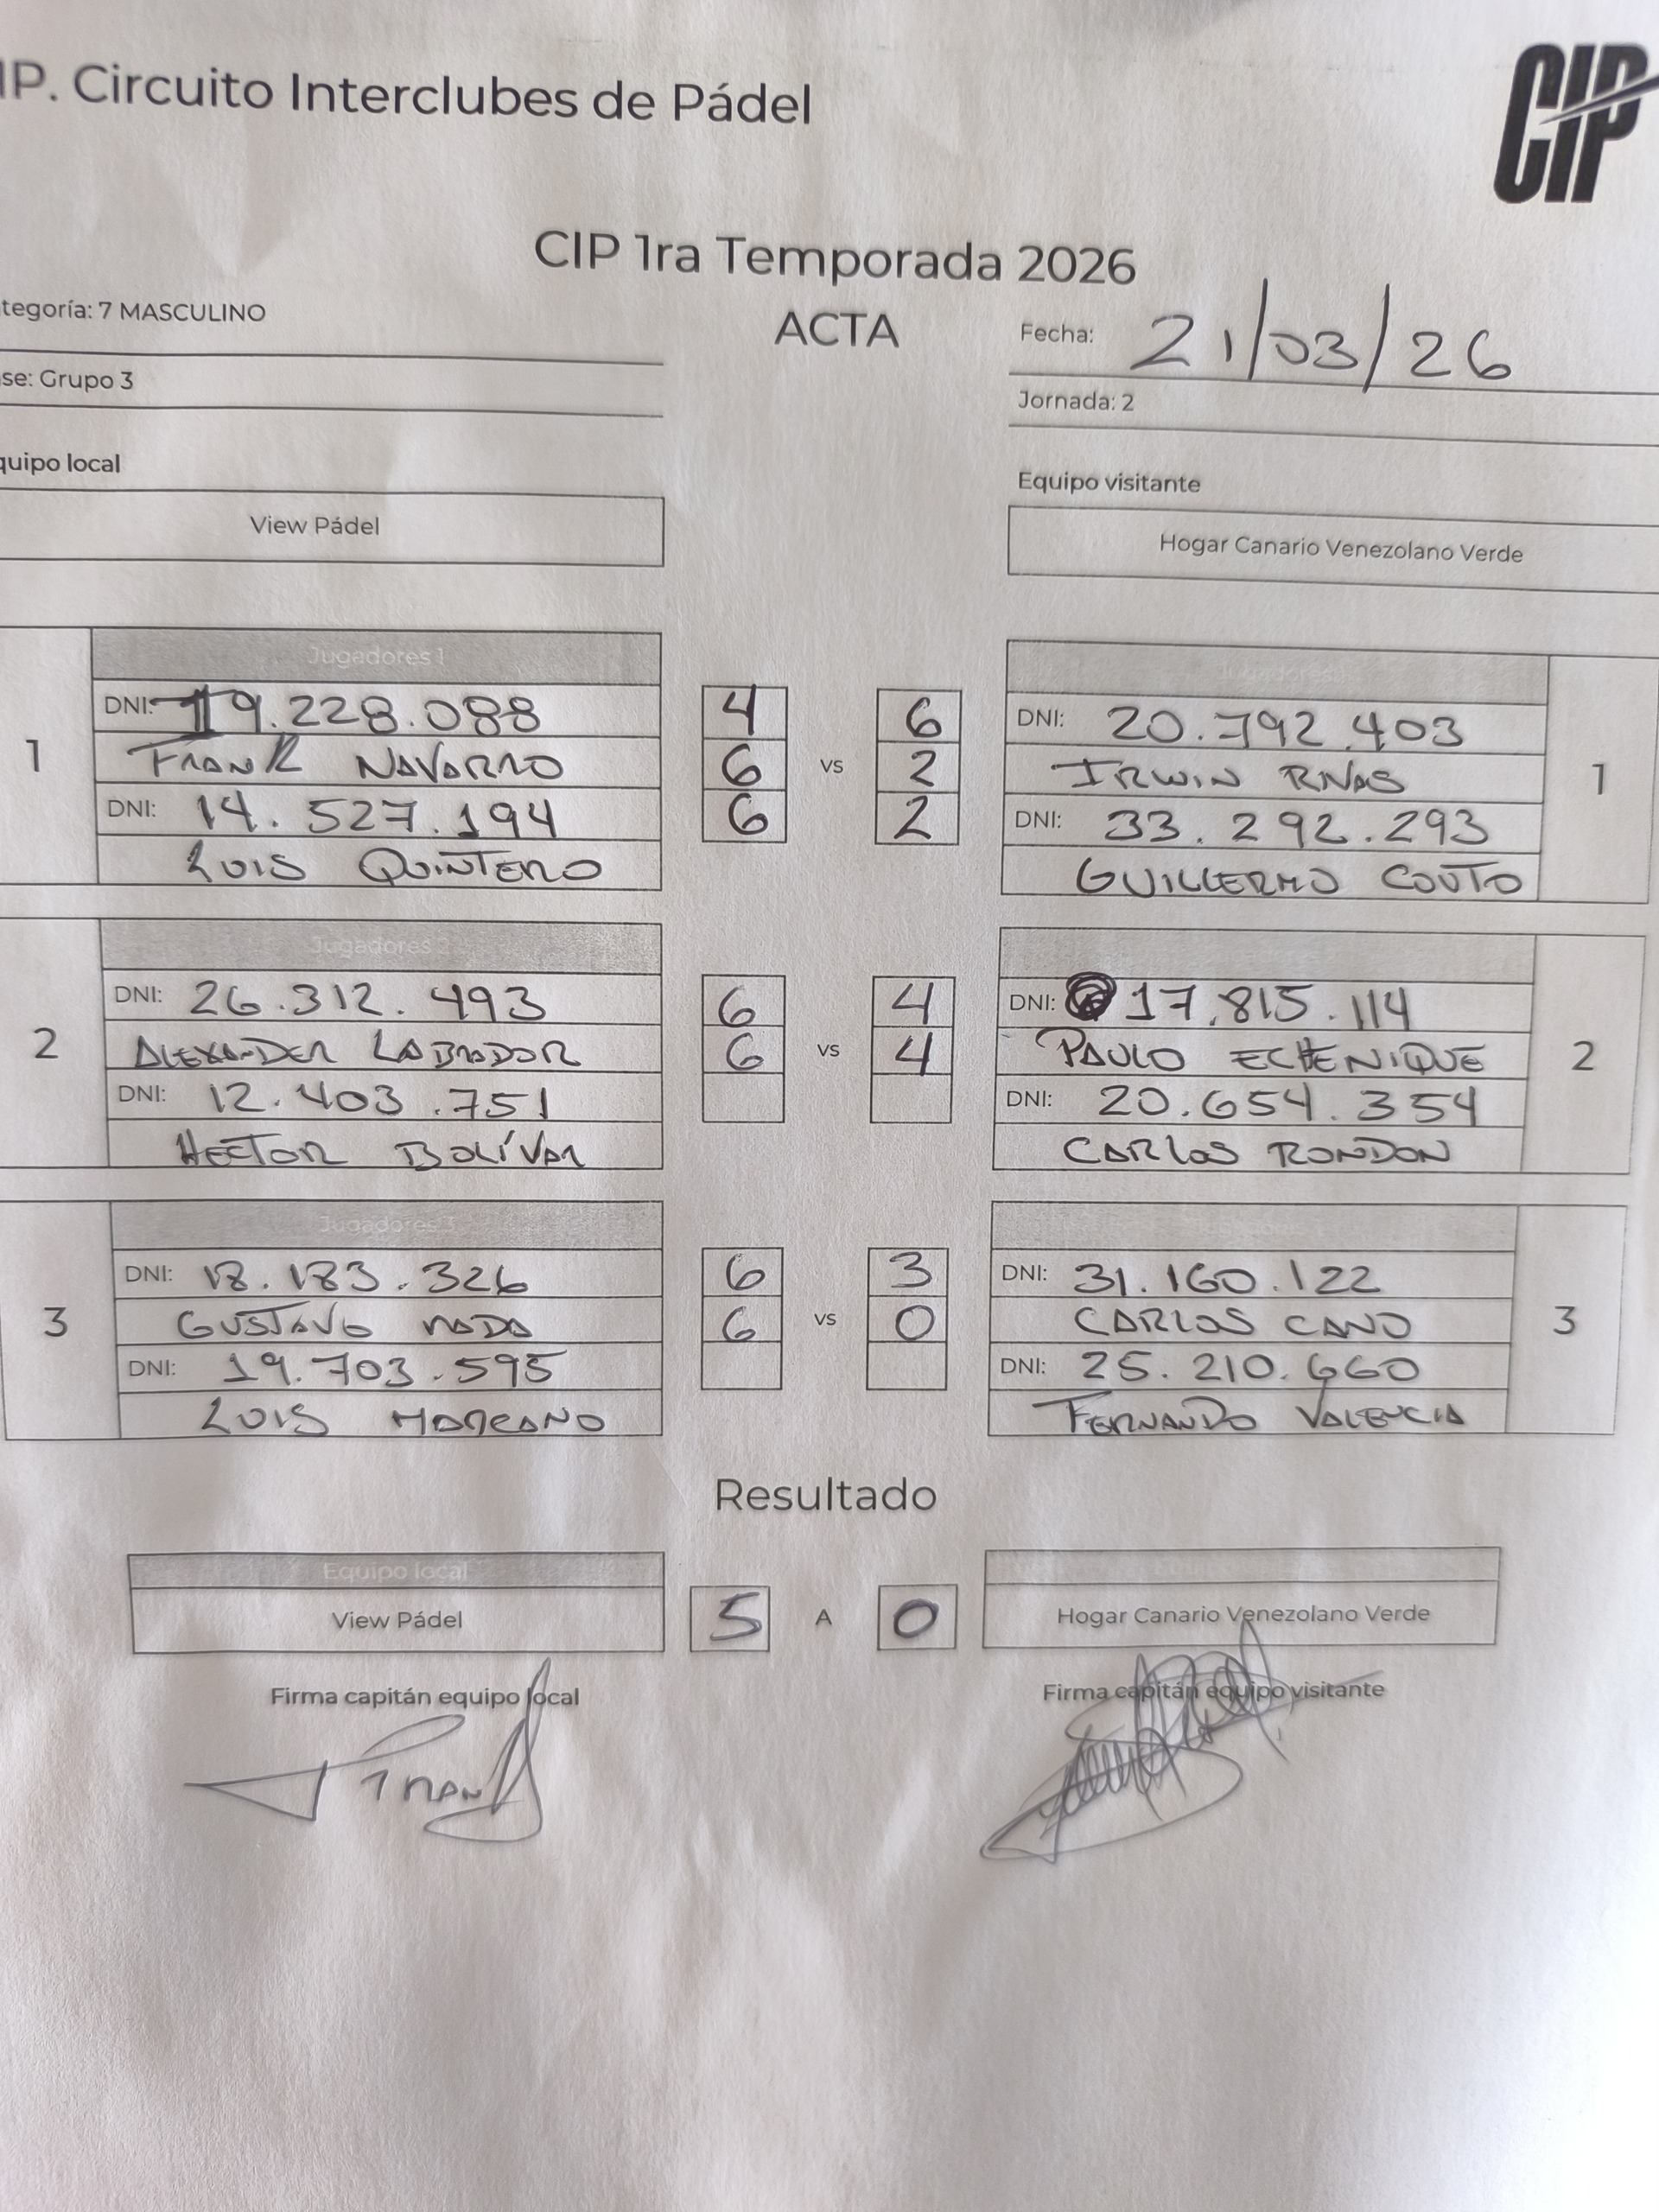 IP. Circuito Interclubes de Pádel
CIP
CIP 1ra Temporada 2026
ACTA
tegoría: 7 MASCULINO
Fecha: 21/03/26
se: Grupo 3
Jornada: 2
quipo local
Equipo visitante
View Pádel
Hogar Canario Venezolano Verde
1
Jugadores 1
DNI: 19.228.088
FRANK NAVARRO
DNI: 14.527.194
LUIS QUINTERO
4 6
6 vs 2
6 2
DNI: 20.792.403
IRWIN RIVAS
DNI: 33.292.293
GUILLERMO COUTO
1
2
Jugadores 2
DNI: 26.312.493
ALEXANDER LABRADOR
DNI: 12.403.751
HECTOR BOLÍVAR
6 4
6 vs 4
DNI: 17.815.114
PAULO ECHENIQUE
DNI: 20.654.354
CARLOS RONDON
2
3
Jugadores 3
DNI: 18.183.326
GUSTAVO
DNI: 19.703.595
LUIS MARCANO
6 3
6 vs 0
DNI: 31.160.122
CARLOS CANO
DNI: 25.210.660
FERNANDO VALENCIA
3
Resultado
Equipo local
View Pádel
5 A 0
Hogar Canario Venezolano Verde
Firma capitán equipo local
Firma capitán equipo visitante
FRANK